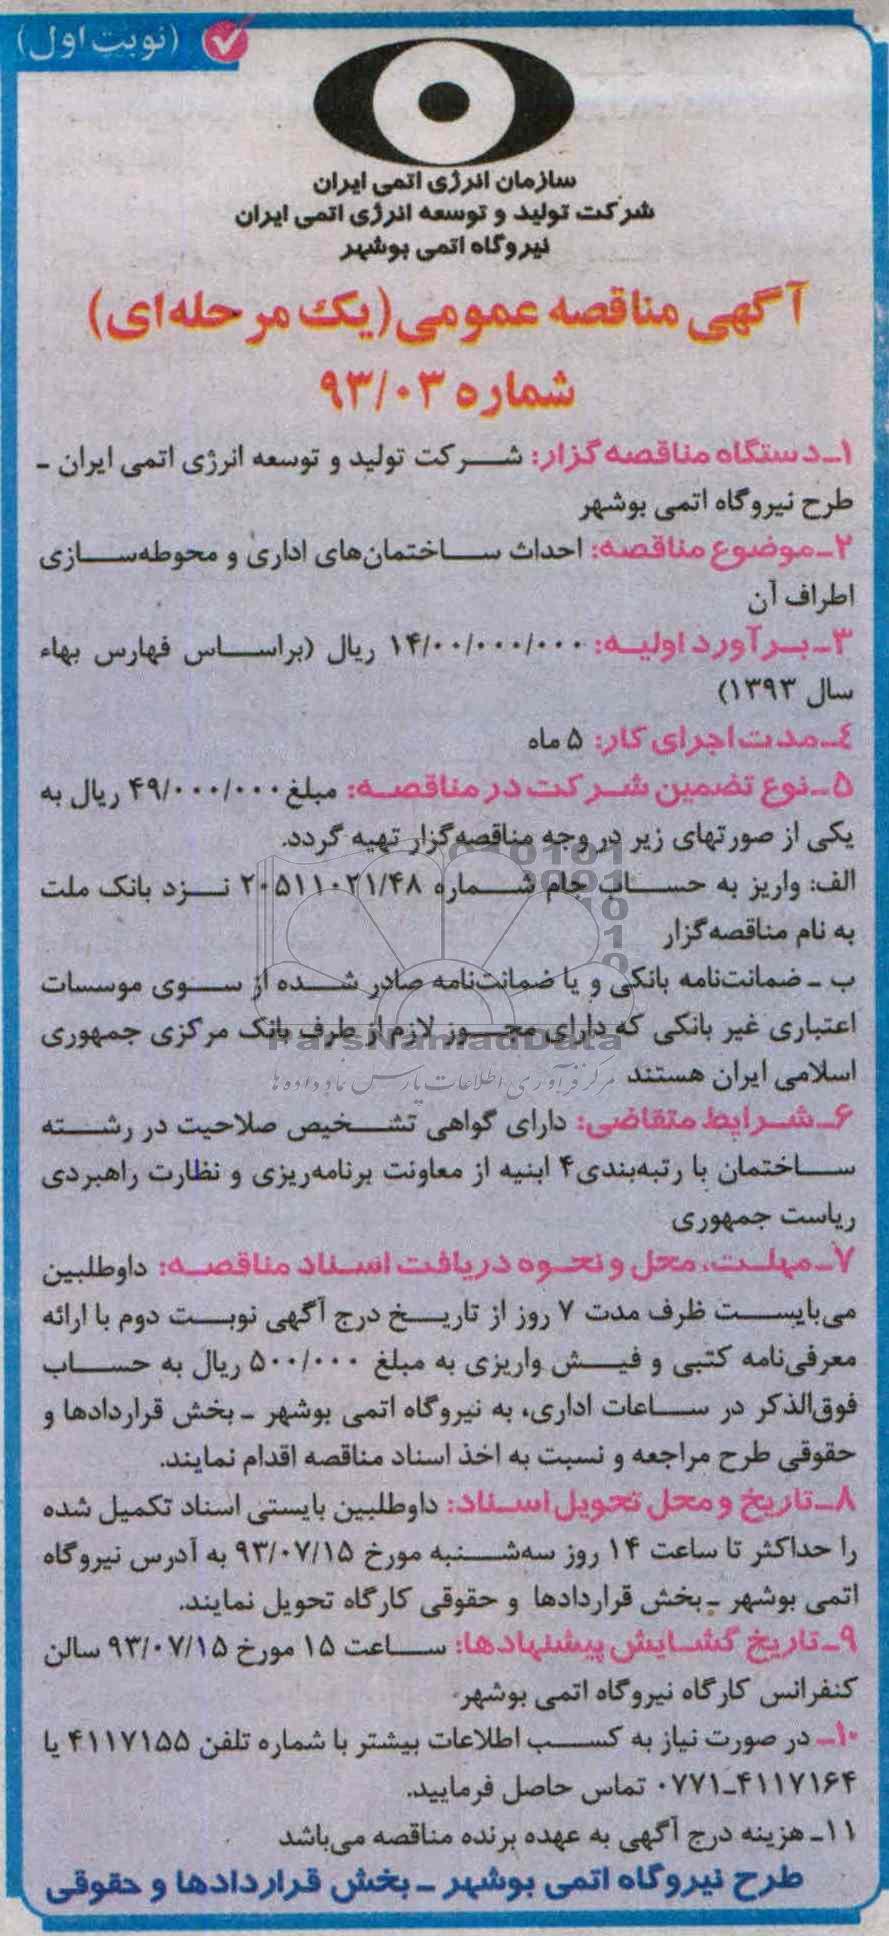 (نوبت اول)
سازمان انرژی اتمی ایران
شرکت تولید و توسعه انرژی اتمی ایران
نیروگاه اتمی بوشهر
آگهی مناقصه عمومی(یک مرحله‌ای)
شماره ۹۳/۰۳
۱ـ دستگاه مناقصه گزار: شرکت تولید و توسعه انرژی اتمی ایران -
طرح نیروگاه اتمی بوشهر
۲ـ موضوع مناقصه: احداث ساختمان‌های اداری و محوطه‌سازی
اطراف آن
۳ـ برآورد اولیه: ۱۴/۰۰/۰۰۰/۰۰۰ ریال (براساس فهارس بهاء
سال ۱۳۹۳)
۴ـ مدت اجرای کار: ۵ ماه
۵ـ نوع تضمین شرکت در مناقصه: مبلغ ۴۹/۰۰۰/۰۰۰ ریال به
یکی از صورتهای زیر در وجه مناقصه‌گزار تهیه گردد.
الف: واریز به حساب جام شماره ۲۰۵۱۱۰۲۱/۴۸ نزد بانک ملت
به نام مناقصه‌گزار
ب ـ ضمانت‌نامه بانکی و یا ضمانت‌نامه صادر شده از سوی موسسات
اعتباری غیر بانکی که دارای مجوز لازم از طرف بانک مرکزی جمهوری
اسلامی ایران هستند
ParsNamadData
مرکز فرآوری اطلاعات پارس نماد داده‌ها
۶ـ شرایط متقاضی: دارای گواهی تشخیص صلاحیت در رشته
ساختمان با رتبه‌بندی۴ ابنیه از معاونت برنامه‌ریزی و نظارت راهبردی
ریاست جمهوری
۷ـ مهلت، محل و نحوه دریافت اسناد مناقصه: داوطلبین
می‌بایست ظرف مدت ۷ روز از تاریخ درج آگهی نوبت دوم با ارائه
معرفی‌نامه کتبی و فیش واریزی به مبلغ ۵۰۰/۰۰۰ ریال به حساب
فوق‌الذکر در ساعات اداری، به نیروگاه اتمی بوشهر ـ بخش قراردادها و
حقوقی طرح مراجعه و نسبت به اخذ اسناد مناقصه اقدام نمایند.
۸ـ تاریخ و محل تحویل اسناد: داوطلبین بایستی اسناد تکمیل شده
را حداکثر تا ساعت ۱۴ روز سه‌شنبه مورخ ۹۳/۰۷/۱۵ به آدرس نیروگاه
اتمی بوشهر ـ بخش قراردادها و حقوقی کارگاه تحویل نمایند.
۹ـ تاریخ گشایش پیشنهادها: ساعت ۱۵ مورخ ۹۳/۰۷/۱۵ سالن
کنفرانس کارگاه نیروگاه اتمی بوشهر.
۱۰ـ در صورت نیاز به کسب اطلاعات بیشتر با شماره تلفن ۴۱۱۷۱۵۵ یا
۰۷۷۱ـ۴۱۱۷۱۶۴ تماس حاصل فرمایید.
۱۱ـ هزینه درج آگهی به عهده برنده مناقصه می‌باشد
طرح نیروگاه اتمی بوشهر ـ بخش قراردادها و حقوقی